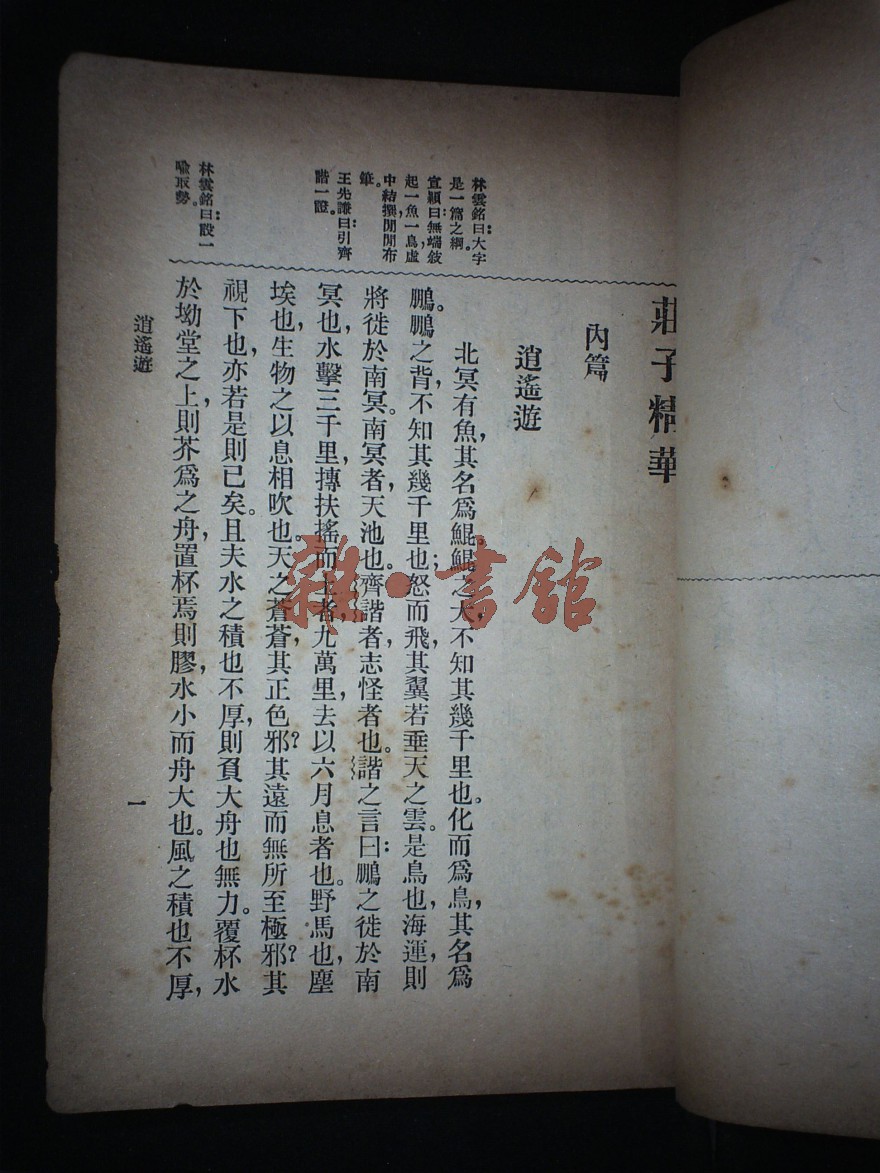 莊子精華
內篇
逍遙遊
北冥有魚,其名爲鯤。鯤之大,不知其幾千里也。化而爲鳥,其名爲
鵬。鵬之背,不知其幾千里也;怒而飛,其翼若垂天之雲。是鳥也,海運則
將徙於南冥。南冥者,天池也。齊諧者,志怪者也。諧之言曰:鵬之徙於南
冥也,水擊三千里,摶扶搖而上者九萬里,去以六月息者也。野馬也,塵
埃也,生物之以息相吹也。天之蒼蒼,其正色邪?其遠而無所至極邪?其
視下也,亦若是則已矣。且夫水之積也不厚,則負大舟也無力。覆杯水
於坳堂之上,則芥爲之舟,置杯焉則膠,水小而舟大也。風之積也不厚,
林雲銘曰:大字
是一篇之綱。
宣穎曰:無端敍
起一魚一鳥,虛
中結撰,閒閒布
筆。
王先謙曰:引齊
諧一證。
林雲銘曰:設一
喩取勢。
逍遙遊
一
雜·書館